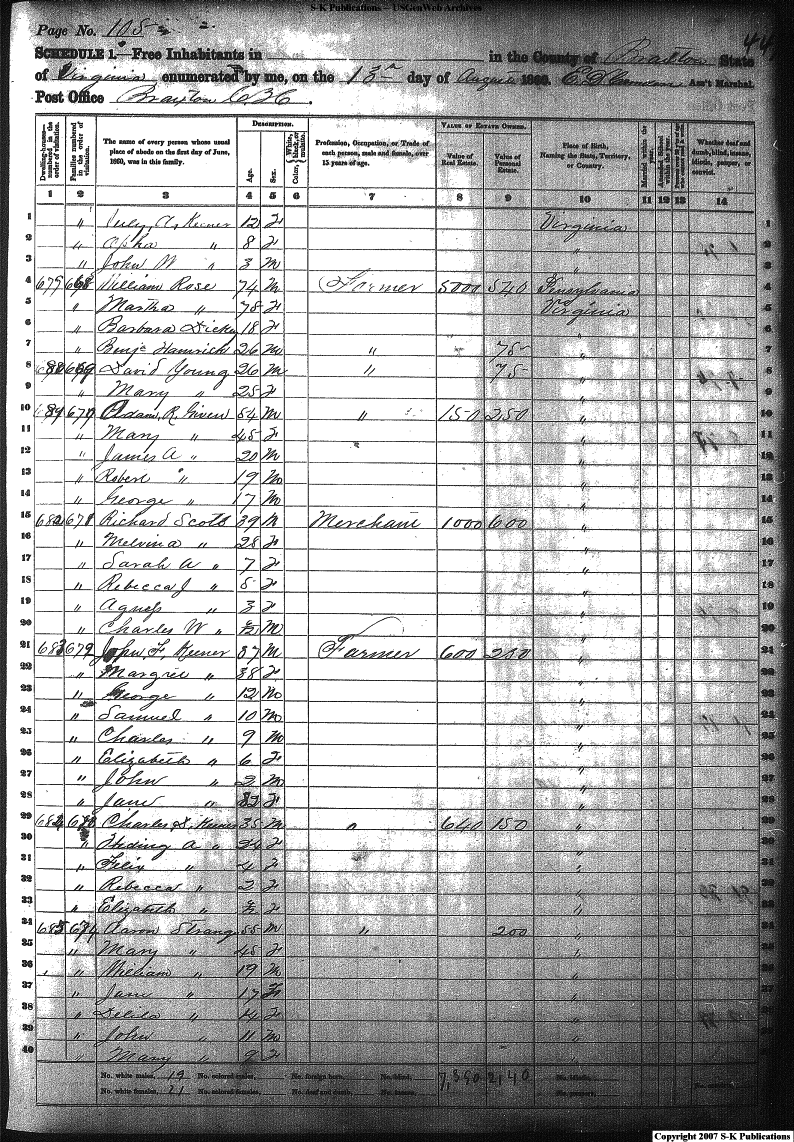 S-K Publications – USGenWeb Archives
Page No. 108
44
SCHEDULE 1.—Free Inhabitants in in the County of Braxton State
of Virginia enumerated by me, on the 18th day of August 1860. Ass't Marshal.
Post Office Braxton C H.
Dwelling-houses—numbered in the order of visitation.
Families numbered in the order of visitation.
The name of every person whose usual place of abode on the first day of June, 1860, was in this family.
DESCRIPTION.
Age.
Sex.
Color, White, black, or mulatto.
Profession, Occupation, or Trade of each person, male and female, over 15 years of age.
VALUE OF ESTATE OWNED.
Value of Real Estate.
Value of Personal Estate.
Place of Birth, Naming the State, Territory, or Country.
Married within the year.
Attended School within the year.
Whether deaf and dumb, blind, insane, idiotic, pauper, or convict.
1 2 3 4 5 6 7 8 9 10 11 12 13 14
1 " July A. Keener 12 F Virginia 1
2 " " 8 F " 2
3 " John W " 3 M " 3
4 679 668 William Rose 74 M Farmer 5000 540 Pennsylvania 4
5 " Martha " 78 F Virginia 5
6 " Barbara Dicky 18 F " 6
7 " Benj. Hamrick 26 M " 75 " 7
8 669 David Young 26 M " 75 " 8
9 " Mary " 25 F " 9
10 670 Adam R. Given 54 M " 150 250 " 10
11 " Mary " 45 F " 11
12 " James A " 20 M " 12
13 " Robert " 19 M " 13
14 " George " 17 M " 14
15 682 671 Richard Scott 39 M Merchant 1000 600 " 15
16 " Melvina " 28 F " 16
17 " Sarah A " 7 F " 17
18 " Rebecca J " 5 F " 18
19 " Agness " 3 F " 19
20 " Charles W " M " 20
21 683 672 John F. Keener 37 M Farmer 600 200 " 21
22 " Margret " 38 F " 22
23 " George " 12 M " 23
24 " Samuel " 10 M " 24
25 " Charles " 9 M " 25
26 " Elizabeth " 6 F " 26
27 " John " 2 M " 27
28 " Jane " 82 F " 28
29 684 Charles Keener 35 M " 640 150 " 29
30 " A " 24 F " 30
31 " Felix " 4 " 31
32 " Rebecca " 2 F " 32
33 " Elizabeth " F " 33
34 685 674 Aaron Strang 55 M " 200 " 34
35 " Mary " 45 F " 35
36 " William " 19 M " 36
37 " Jane " 17 F " 37
38 " Delila " 14 F " 38
39 " John " 11 M " 39
40 " Mary " 9 F " 40
No. white males, 19 No. colored males, No. foreign born, No. blind, 7,390 2,140 No. idiotic,
No. white females, 21 No. colored females, No. deaf and dumb, No. insane, No. paupers, No. convicts,
Copyright 2007 S-K Publications